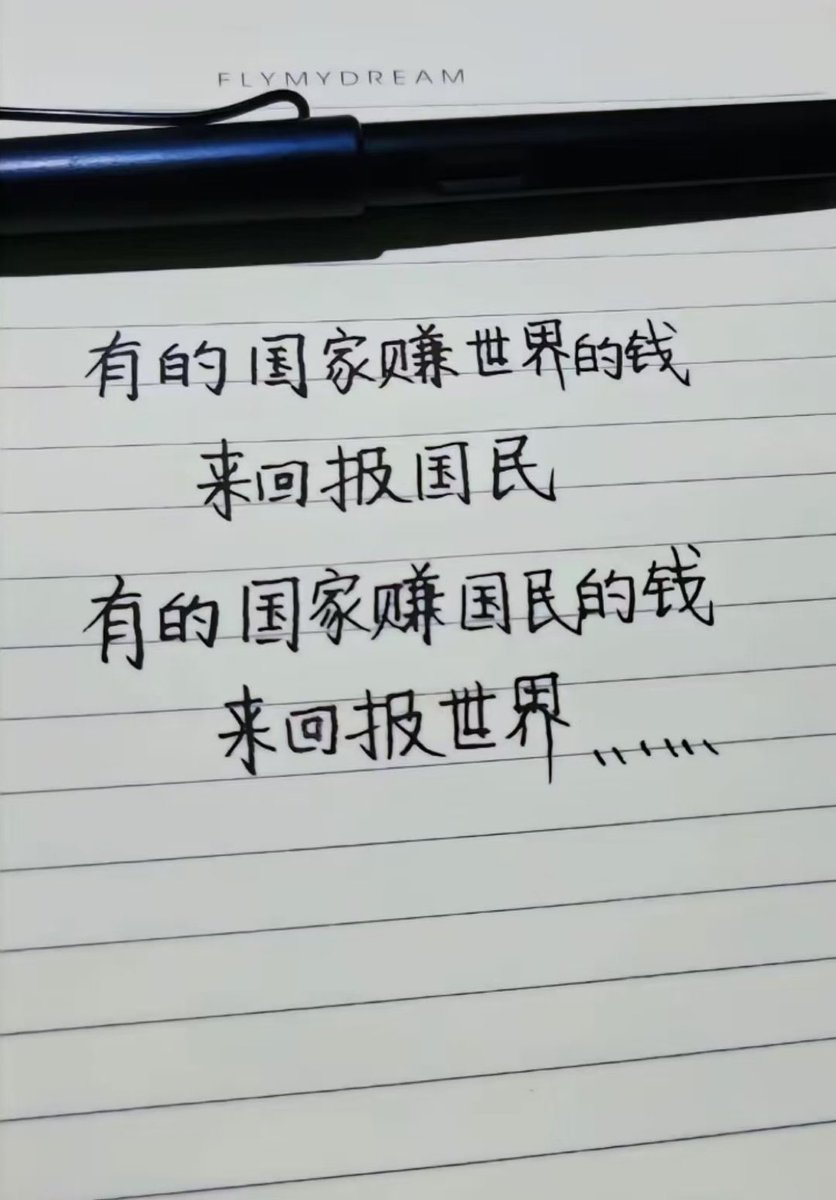 FLYMYDREAM
有的国家赚世界的钱
来回报国民
有的国家赚国民的钱
来回报世界……